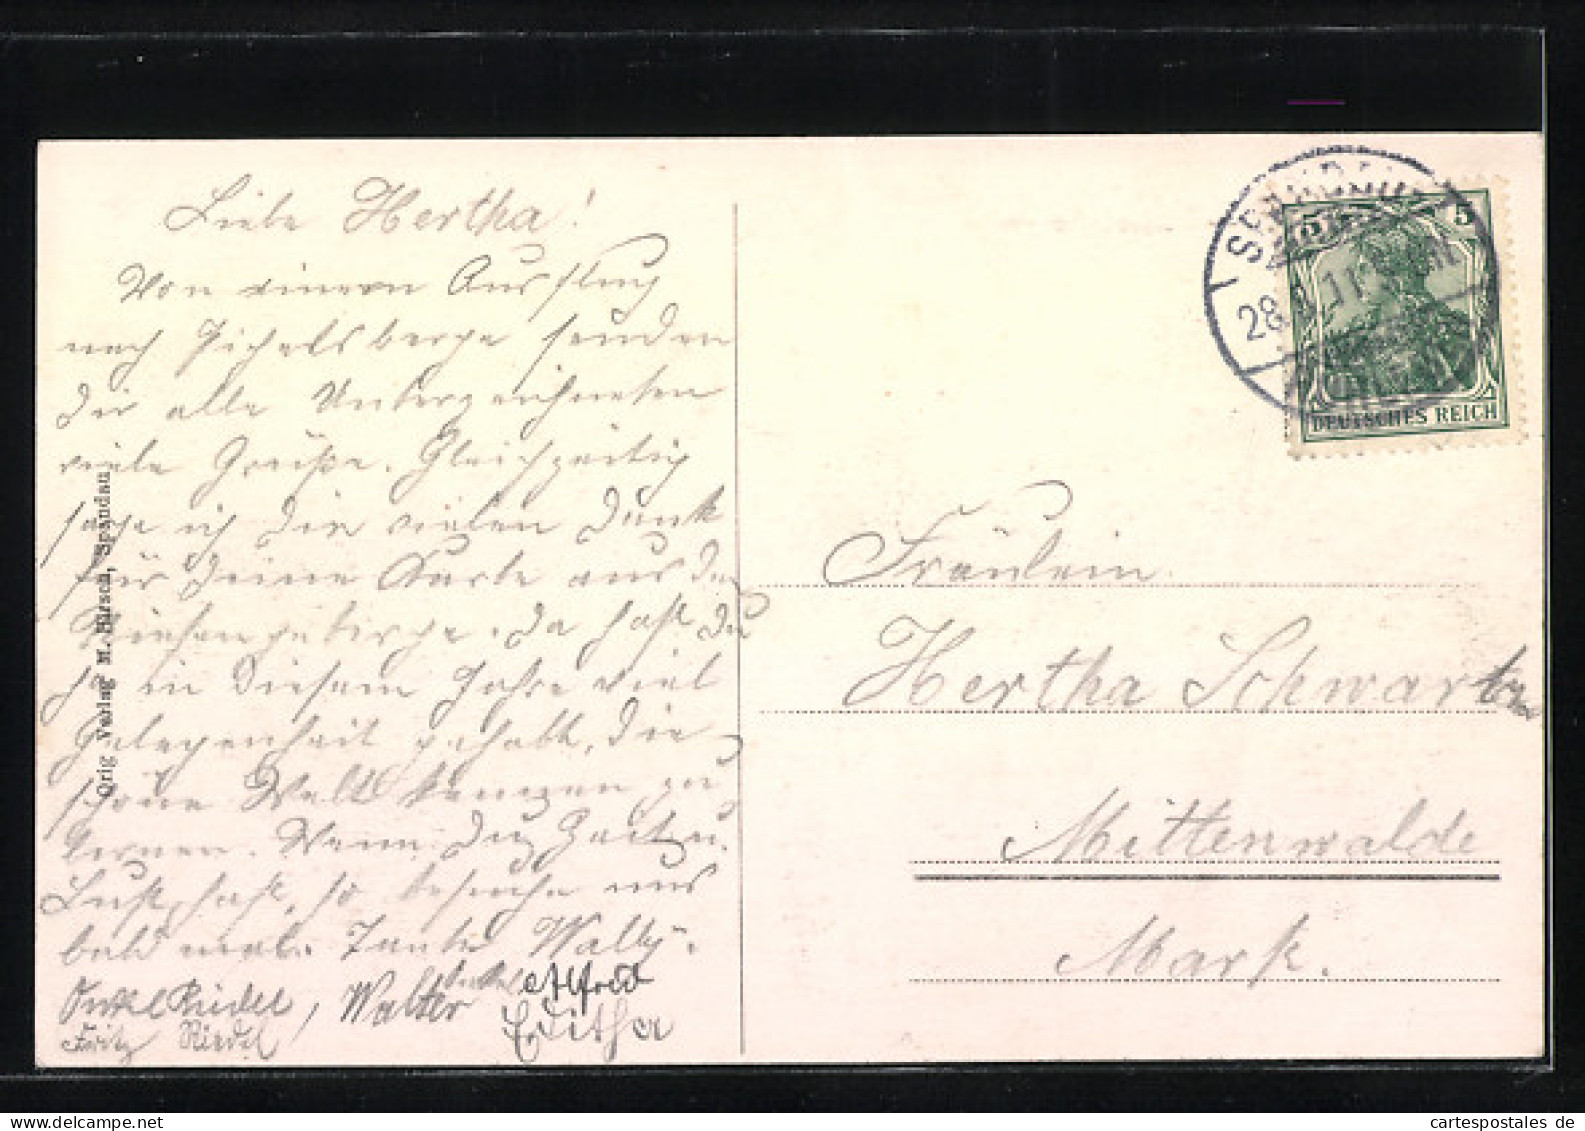 Liebe Hertha!
Von einem Ausflug
nach Pichelsberge senden
Dir alle Unterzeichneten
viele Grüße. Gleichzeitig
sage ich Dir vielen Dank
für Deine Karte aus dem
Riesengebirge. Da hast Du
ja in diesem Jahre viel
Gelegenheit gehabt, die
schöne Welt kennen zu
lernen. Wenn Du Zeit u.
Lust hast, so besuche uns
bald mal. Tante Wally.
Onkel Riedel, Walter Onkel Alfred
Fritz Riedel Editha
Orig. Verlag M. Hirsch, Spandau
SPANDAU
28. 11. 5-6N
5 5
DEUTSCHES REICH
Fräulein
Hertha Schwartz
Mittenwalde
Mark.
cartespostales de